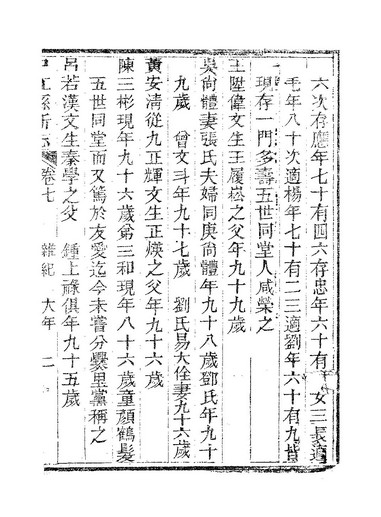 六次存應年七十有四六存忠年六十有 女三長適
毛年八十次適楊年七十有二三適劉年六十有九皆
現存一門多壽五世同堂人咸榮之
王陞偉文生王履崧之父年九十九歲
吳尚體妻張氏夫婦同庚尚體年九十八歲鄧氏年九十
九歲 曾文斗年九十七歲 劉氏易大佺妻九十六歲
黃安清從九正輝文生正煐之父年九十六歲
陳三彬現年九十六歲弟三和現年八十六歲童顏鶴髮
五世同堂而又篤於友愛迄今未嘗分爨里黨稱之
呂若漢文生秦學之父 鍾上祿俱年九十五歲
中江縣新志 卷七 雜紀 大年 二